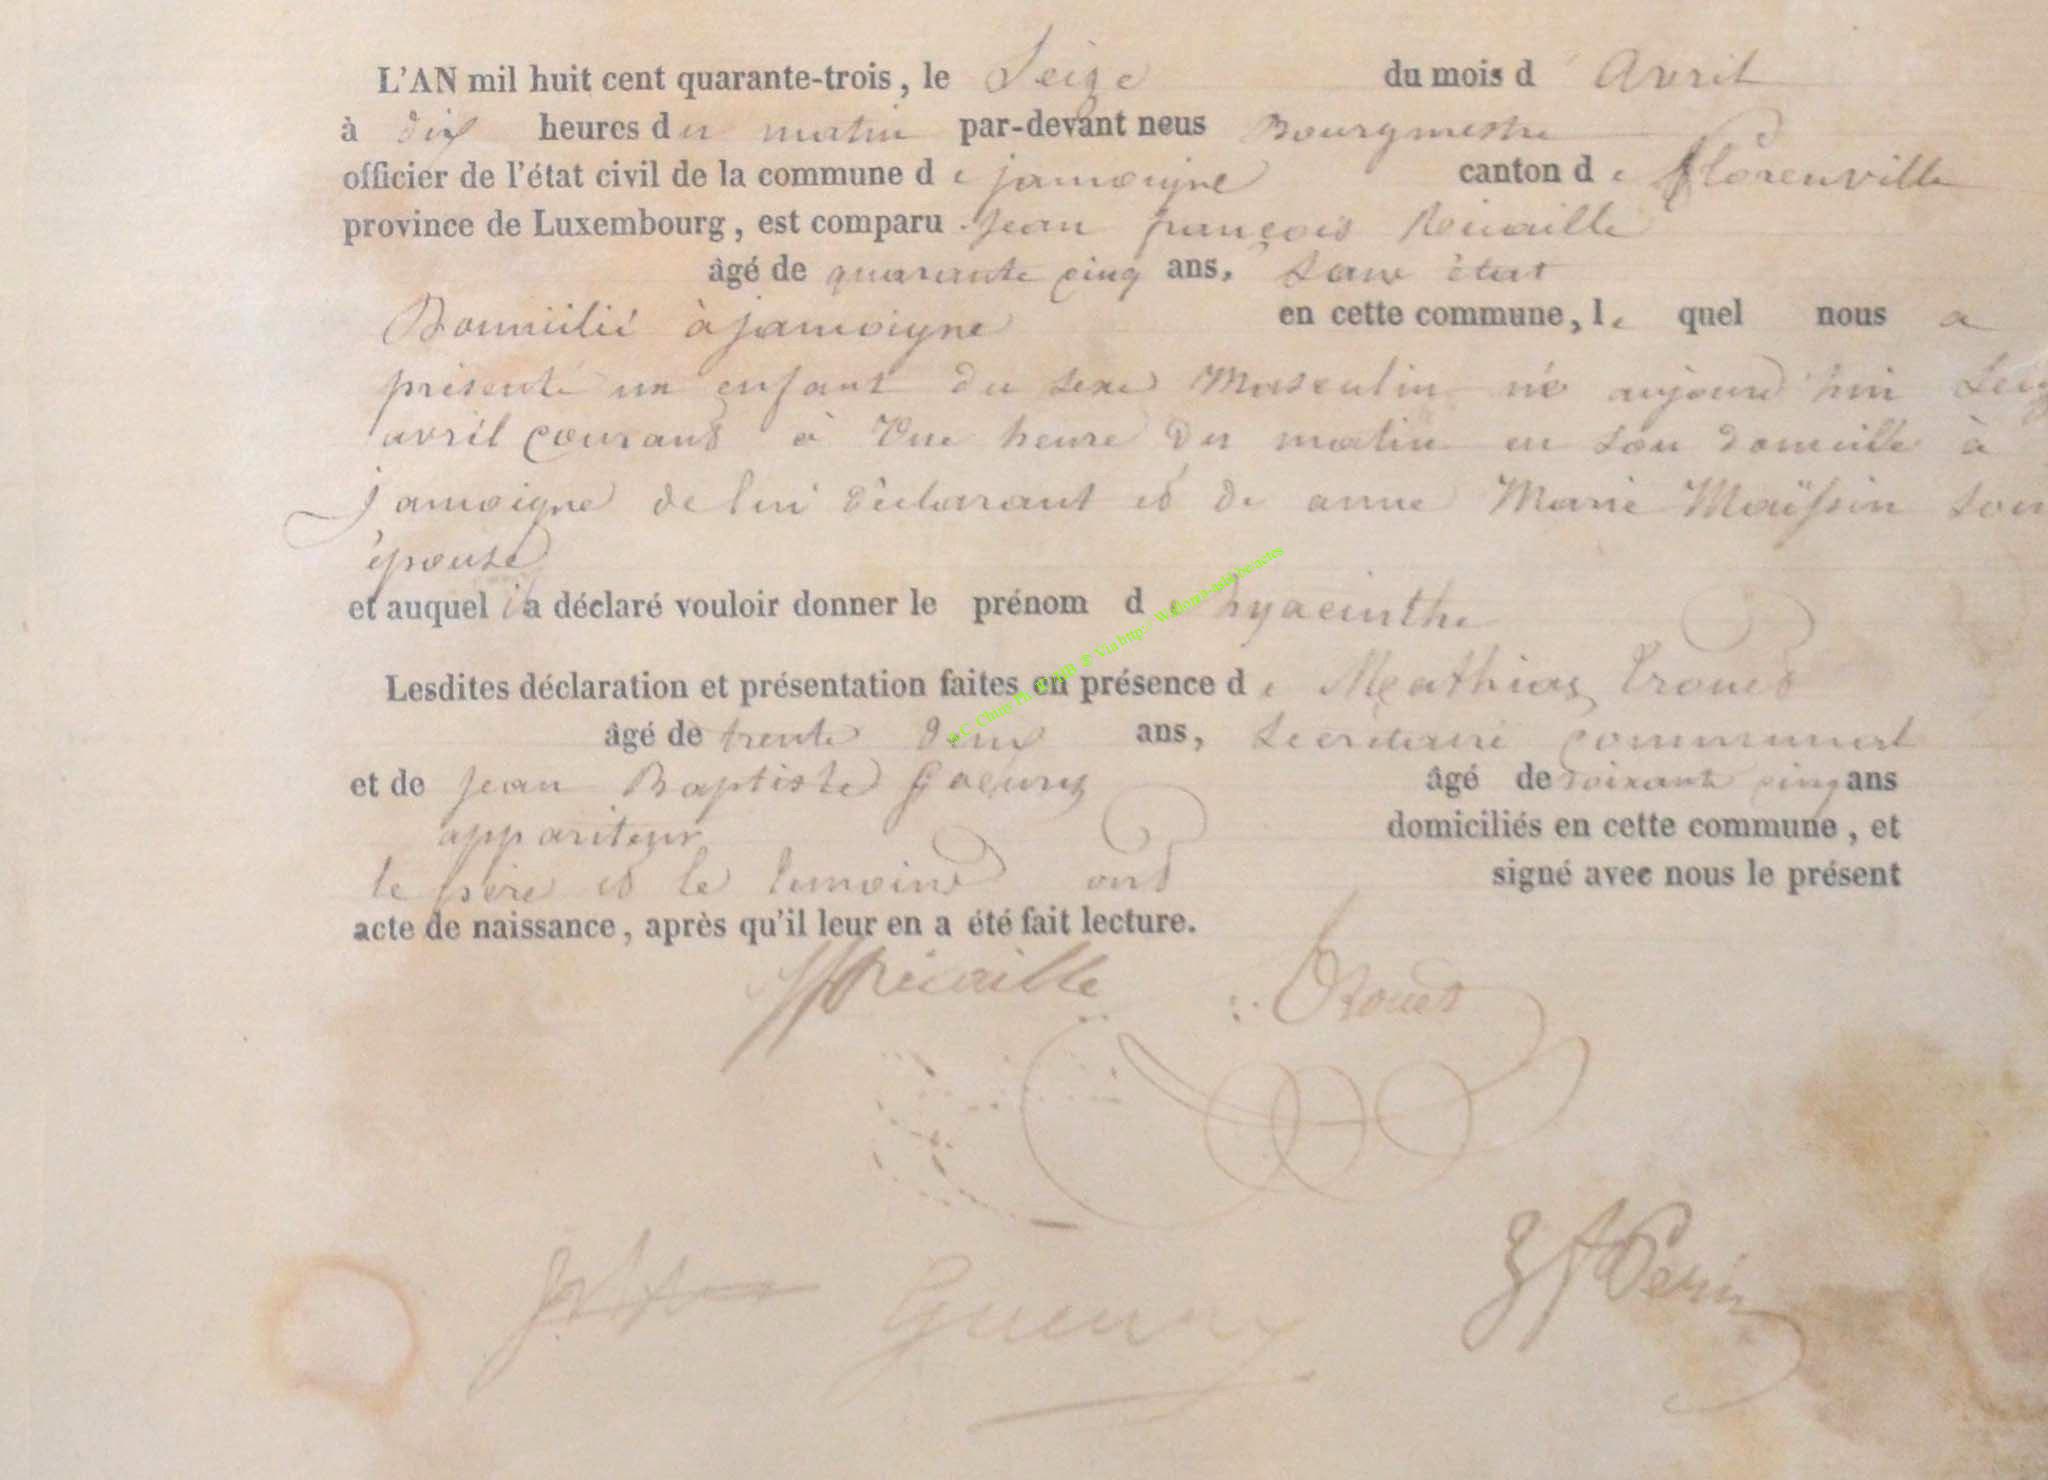 L'AN mil huit cent quarante-trois, le Seize du mois d Avril
à dix heures du matin par-devant nous Bourgmestre
officier de l'état civil de la commune de jamoigne canton de florenville
province de Luxembourg, est comparu Jean françois Récaille
âgé de quarante cinq ans, Sans état
Domicilié à jamoigne en cette commune, le quel nous a
présenté un enfant du sexe Masculin né aujourd'hui Seiz
avril courant à Une heure du matin en son domicile à
jamoigne de lui déclarant et de anne Marie Maüssin son
épouse
et auquel il a déclaré vouloir donner le prénom de hyacinthe
Lesdites déclaration et présentation faites en présence de Mathias Troues
âgé de trente deux ans, Secrétaire communal
et de jean Baptiste âgé de soixante cinq ans
appariteur domiciliés en cette commune, et
le père et le temoins ont signé avec nous le présent
acte de naissance, après qu'il leur en a été fait lecture.
Récaille Troues
Gueury Perin